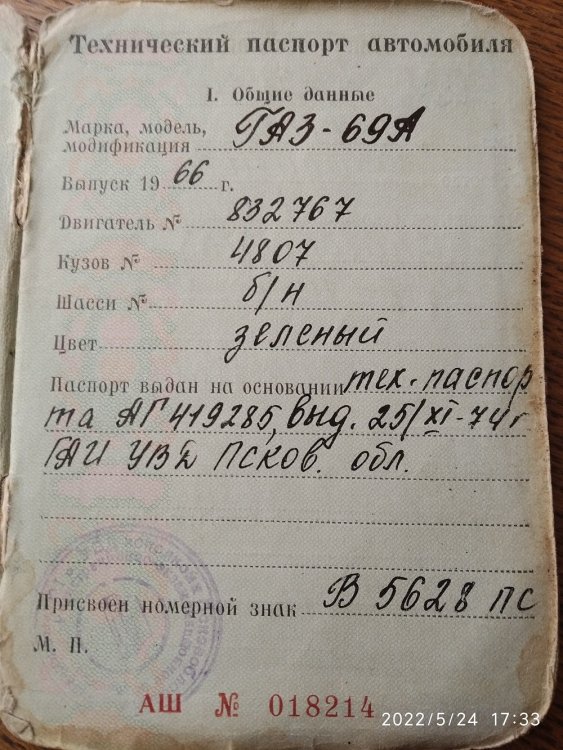 Технический паспорт автомобиля
I. Общие данные
Марка, модель,
модификация ГАЗ-69А
Выпуск 19 66 г.
Двигатель № 832767
Кузов № 4807
Шасси № б/н
Цвет зеленый
Паспорт выдан на основании тех. паспор
та АГ 419285, выд. 25/XI-74г
ГАИ УВД Псков. обл.
Присвоен номерной знак В 5628 ПС
М. П.
АШ № 018214
2022/5/24 17:33